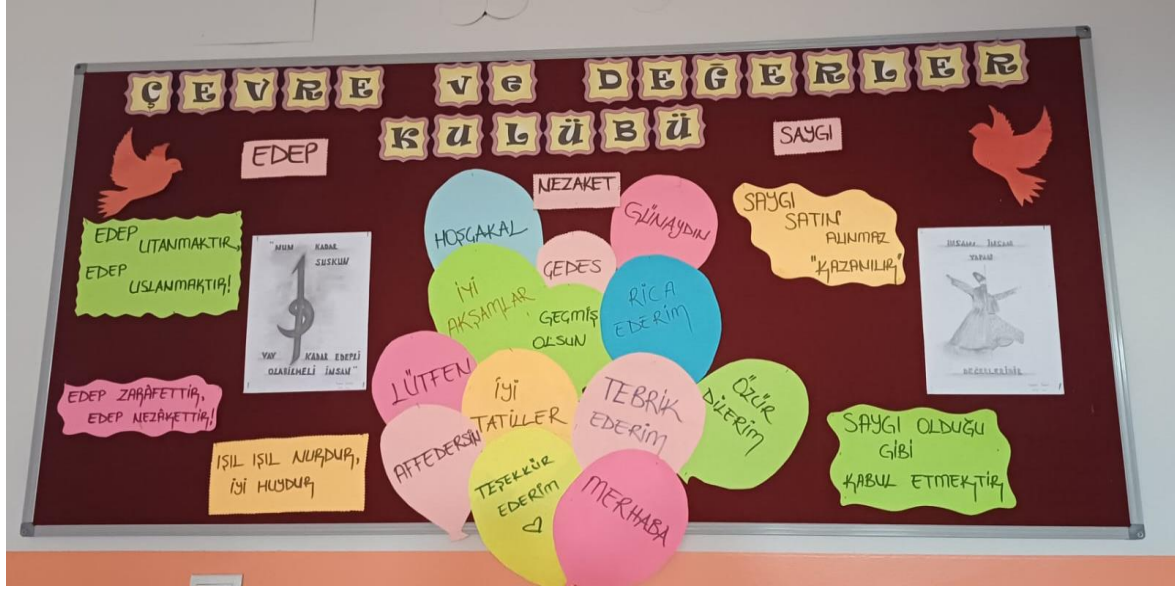 ÇEVRE Ve DEĞERLER
KULÜBÜ
EDEP
NEZAKET
SAYGI
EDEP
UTANMAKTIR,
EDEP
USLANMAKTIR!
"NUN KADAR
SUSKUN
VAV KADAR EDEPLİ
OLABİLMELİ İNSAN"
EDEP ZARÂFETTİR,
EDEP NEZÂKETTİR!
IŞIL IŞIL NURDUR,
İYİ HUYDUR
HOŞÇAKAL
GÜNAYDIN
GEDES
İYİ
AKŞAMLAR
GEÇMİŞ
OLSUN
RİCA
EDERİM
LÜTFEN
İYİ
TATİLLER
TEBRİK
EDERİM
ÖZÜR
DİLERİM
AFFEDERSİN
TEŞEKKÜR
EDERİM
MERHABA
SAYGI
SATIN
ALINMAZ
"KAZANILIR"
İNSANI İNSAN
YAPAN
DEĞERLERİDİR
SAYGI OLDUĞU
GİBİ
KABUL ETMEKTİR